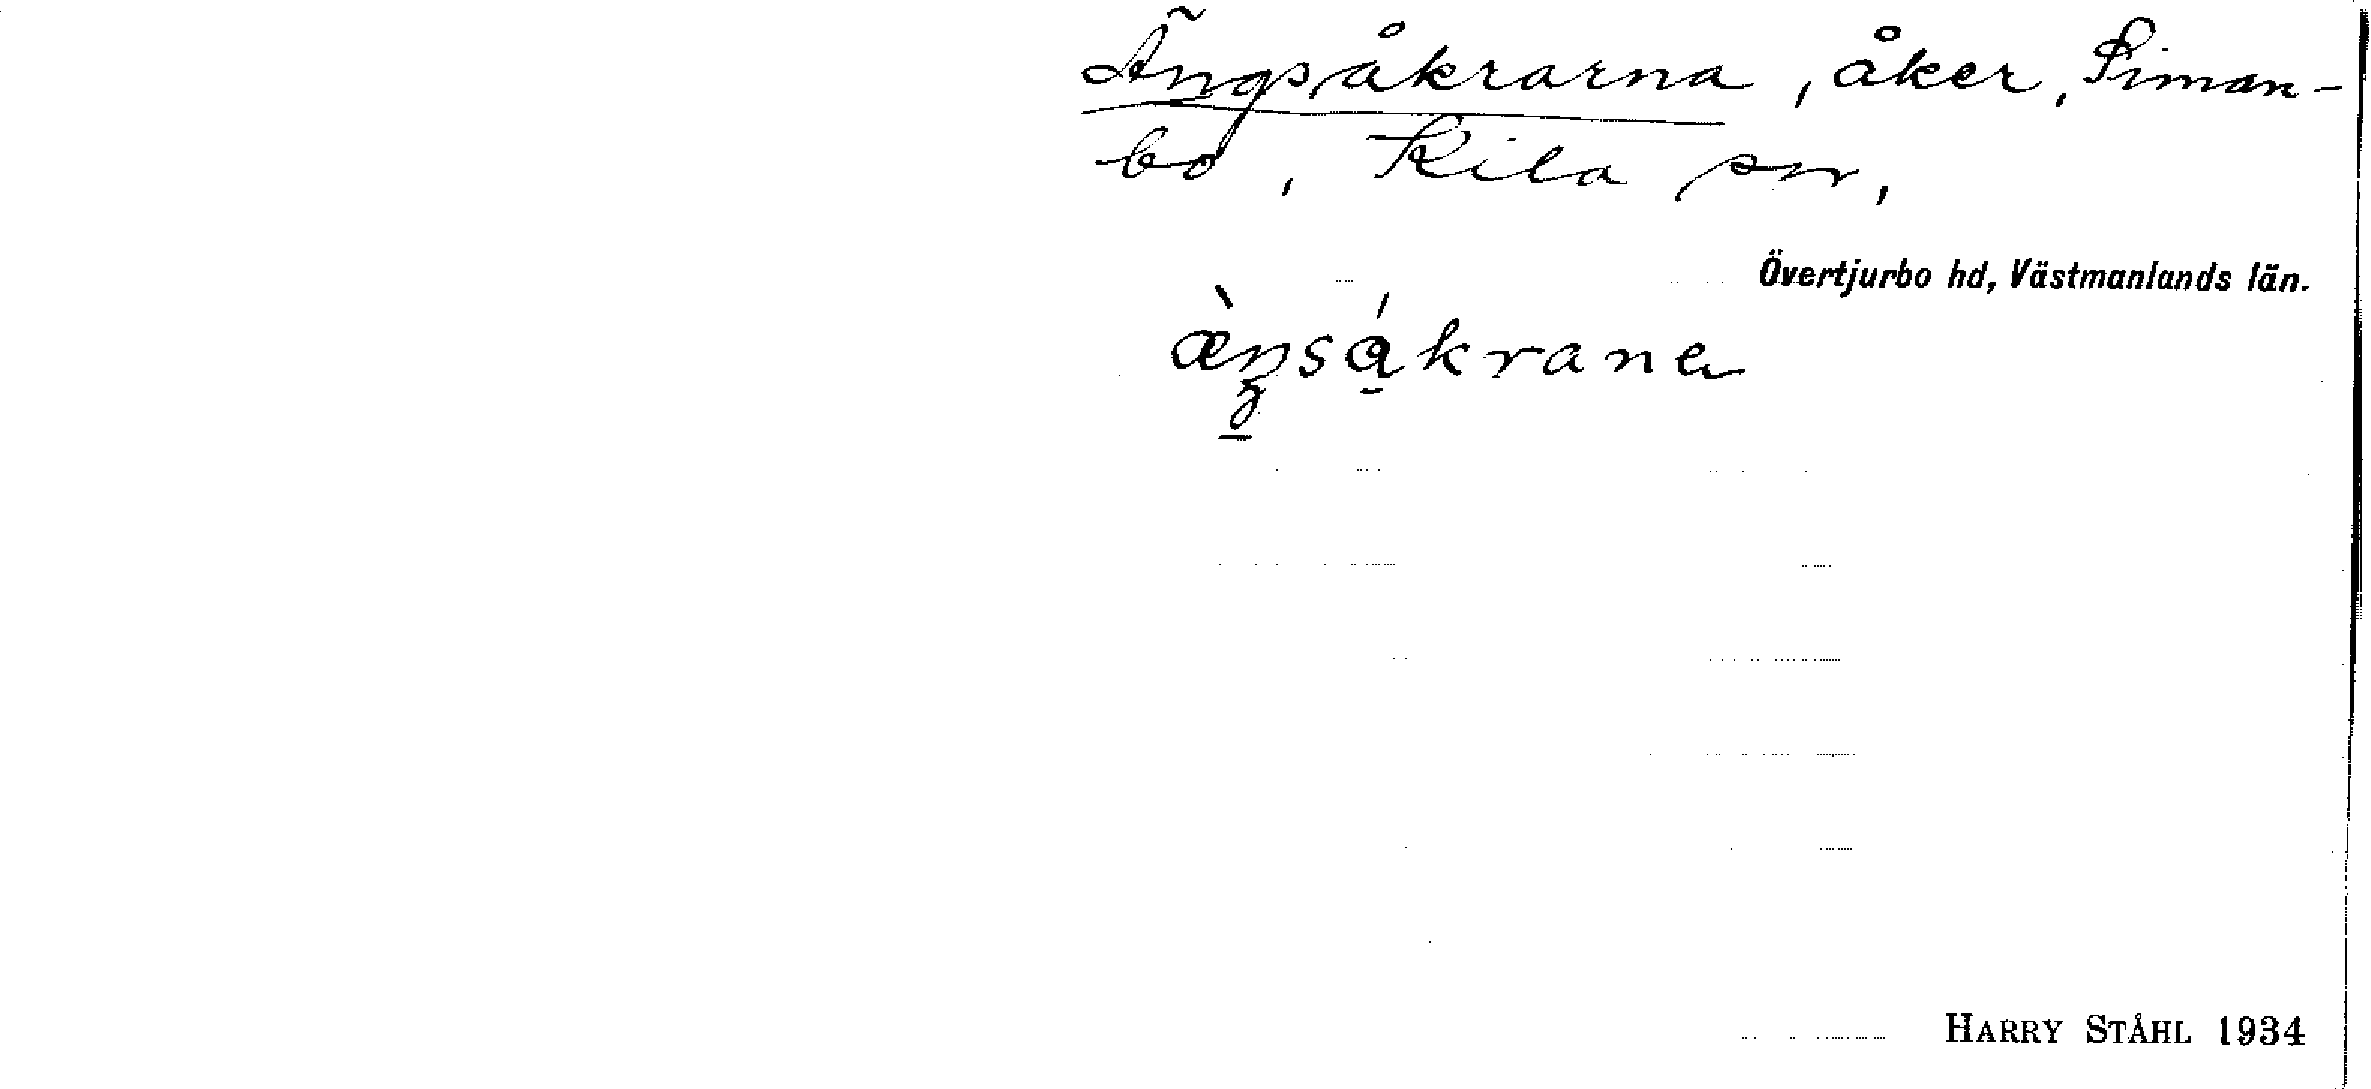 Ängsåkrarna, åker, Siman-
bo, Kila sn,
Övertjurbo hd, Västmanlands län.
æ̀ŋsákrana
HARRY STÅHL 1934